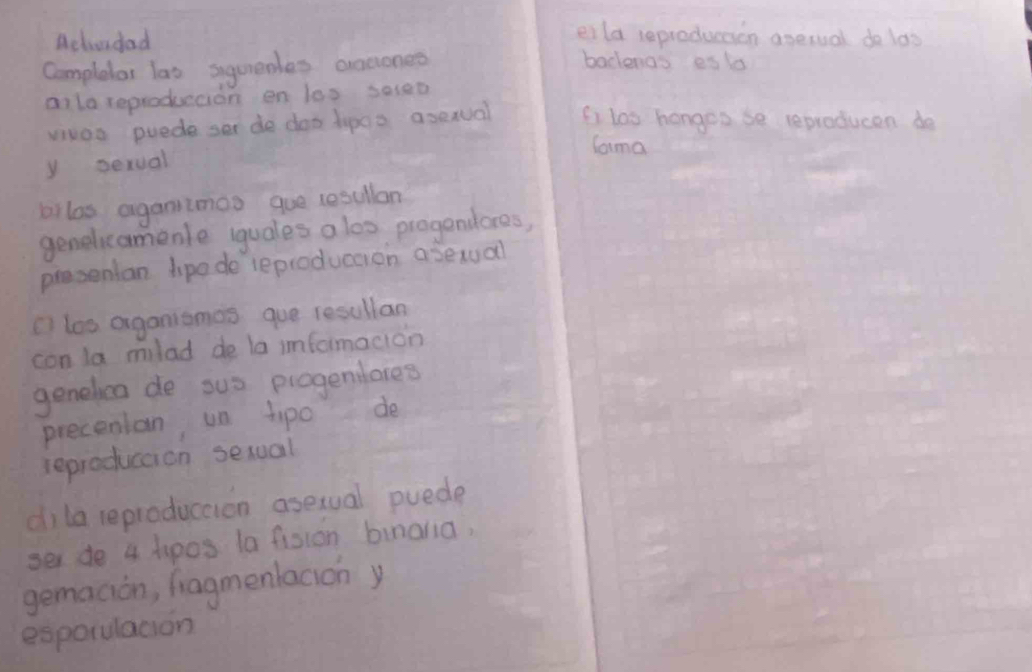 Actividad
Completar las siguientes oraciones
a) la reproducción en los seres
vivos puede ser de dos tipos asexual
y sexual
b) los organizmos que resultan
geneticamente iguales a los progenitores,
presentan tipo de reproducción asexual
c) los organismos que resultan
con la mitad de la imformación
genetica de sus progenitores
precentan, un tipo de
reproducción sexual
d) la reproducción asexual puede
ser de 4 tipos la fisión binaria,
gemación, fragmentación y
esporulación
e) la reproducción asexual de las
bacterias es la
f) los hongos se reproducen de
forma